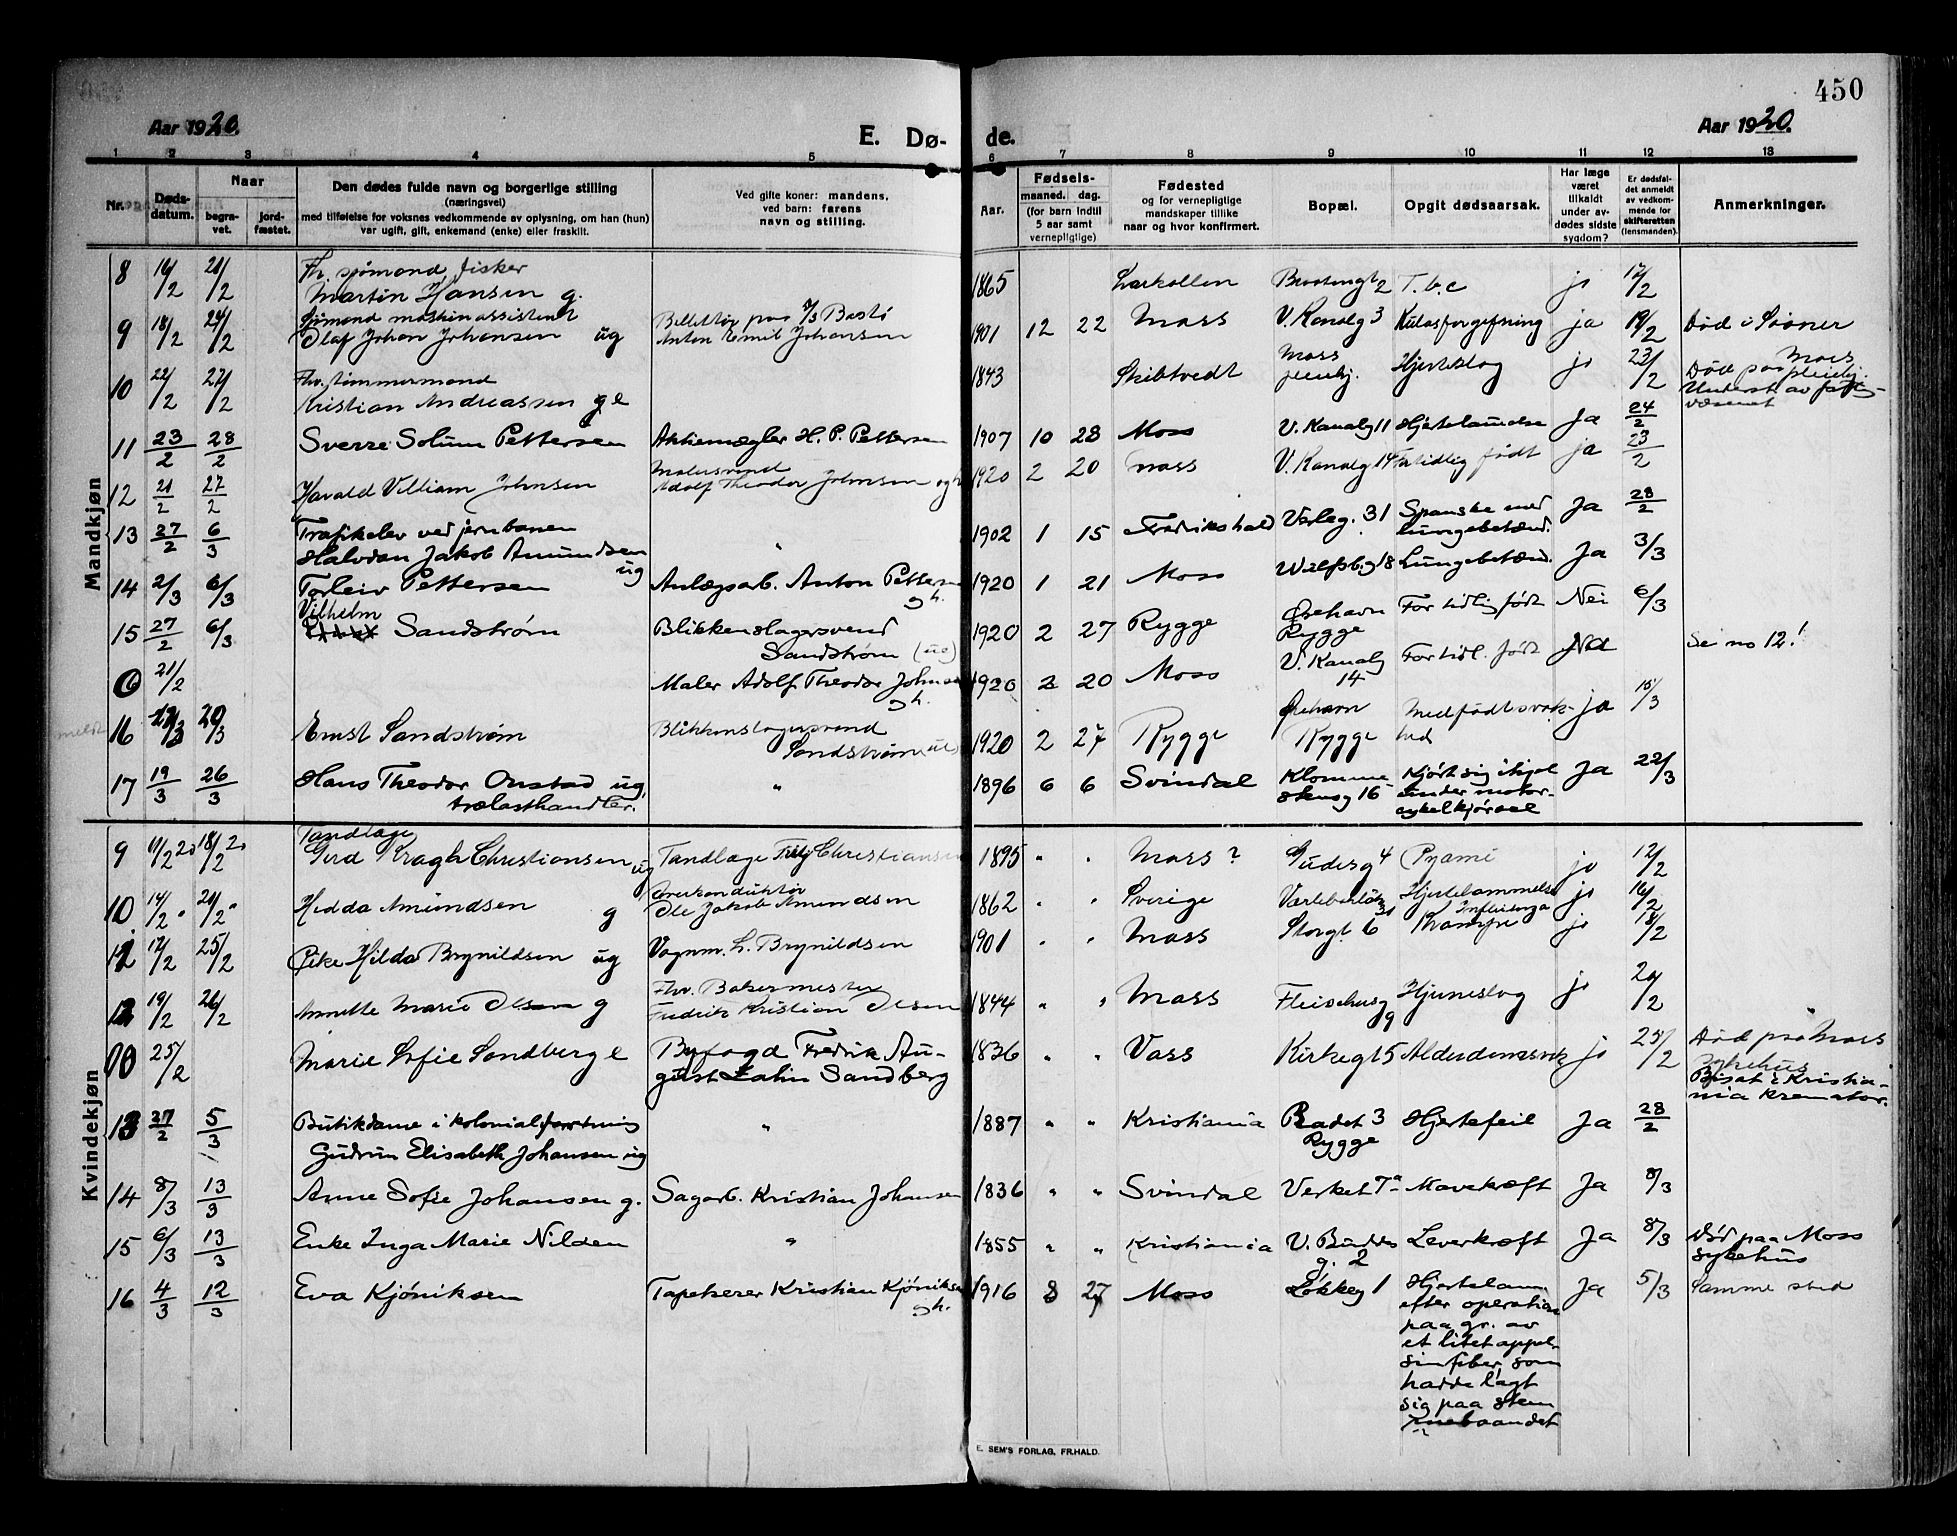 450
Aar 1920.
E. Dø-
de.
Aar 1920.
1 2 3 4 5 6 7 8 9 10 11 12 13
Nr.
Døds-
datum.
Naar
begra-
vet.
jord-
fæstet.
Den dødes fulde navn og borgerlige stilling
(næringsvei)
med tilføielse for voksnes vedkommende av oplysning, om han (hun)
var ugift, gift, enkemand (enke) eller fraskilt.
Ved gifte koner: mandens,
ved barn: farens
navn og stilling.
Aar.
Fødsels-
maaned. dag.
(for barn indtil
5 aar samt
vernepligtige)
Fødested
og for vernepligtige
mandskaper tillike
naar og hvor konfirmert.
Bopæl.
Opgit dødsaarsak.
Har læge
været
tilkaldt
under av-
dødes sidste
sygdom?
Er dødsfal-
det anmeldt
av vedkom-
mende for
skifteretten
(lensmanden).
Anmerkninger.
Mandkjøn
8 16/2 21/2 Fh. sjømand fisker
Martin Hansen g. 1865 Larkollen T.b.c ja 17/2
9 18/2 24/2 Sjømand maskinassistent
Olaf Johan Johansen ug Billettør paa D/S Bastø
Anton Emil Johansen 1901 12 22 Moss V. Kanalg 3 Kulosforgiftning ja 19/2 Død i Sooner
10 22/2 27/2 Fhv. tømmermand
Kristian Andreassen g e 1843 Skibtvedt Moss
pleiehj. Hjerteslag ja 23/2 Død paa Moss pleiehj.
Underst. av fattig-
væsenet
11 23/2 28/2 Sverre Solum Pettersen Aktiemægler H. P. Pettersen 1907 10 28 Moss V. Kanalg 11 Hjertelammelse Ja 24/2
12 21/2 27/2 Harald Villiam Johnsen Malersvend
Adolf Theodor Johnsen og h 1920 2 20 Moss V. Kanalg 14 For tidlig født ja 23/2
13 27/2 6/3 Trafikelev ved jernbanen
Halvdan Jakob Amundsen
ug " 1902 1 15 Fredrikshald Varleg. 31 Spanske med
lungebetænd. Ja 28/2
14 2/3 6/3 Torleiv Pettersen Anlægsarb. Anton Pettersen
gh. 1920 1 21 Moss Lungebetænd. Ja 3/3
15 27/2 6/3 Vilhelm
Sandstrøm Blikkenslagersvend
Sandstrøm (ue) 1920 2 27 Rygge Ørehavn
Rygge For tidlig født Nei 6/3
21/2 Maler Adolf Theodor Johnsen
gh. 1920 2 20 Moss V. Kanalg
14 For tidl. født Se no 12!
16 20/3 Ernst Sandstrøm Blikkenslagersvend
Sandstrøm (ue) 1920 2 27 Rygge Ørehavn
Rygge Medfødt svak-
hed ja 15/3
17 19/3 26/3 Hans Theodor Onstad ug.
trælasthandler. " 1896 6 6 Svindal Klomme
stensg 16 Kjørt sig ihjel
under motor-
cykelkjørsel Ja 22/3
Kvindekjøn
9 11/2 20 18/2 20 Tandlæge
Gerd Kragh Christiansen ug Tandlæge Fritz Christiansen 1895 " " Moss? Gudesg 4 Pyæmi ja 12/2
10 14/2 20/2 Hedda Amundsen g Overkonduktør
Ole Jakob Amundsen 1862 " " Sverige Hjertelammelse
Influenza ja 16/2
17/2 25/2 Pike Hilda Brynildsen ug Vognm. L. Brynildsen 1901 " " Moss Storgt. 6 Krampe ja 18/2
12 19/2 26/2 Annette Marie Olsen g Fhv. Bakermester
Fredrik Kristian Olsen 1844 " " Moss Fleischersg
9 Hjerneslag ja 20/2
25/2 Marie Sofie Sandberg e Byfogd Fredrik Au-
gust Zahn Sandberg 1836 " " Vass Kirkegt 5 Alderdomssvak ja 25/2 Død paa Moss
Sykehus
Bisat i Kristia-
nia kremator.
13 27/2 5/3 Butikdame i kolonialforretning
Gudrun Elisabeth Johansen ug " 1887 " " Kristiania Radet 3
Rygge Hjertefeil Ja 28/2
14 8/3 13/3 Anne Sofie Johansen g. Sagarb. Kristian Johansen 1836 " " Svindal Verket 7a Mavekræft Ja 8/3
15 6/3 13/3 Enke Inga Marie Nilsen " 1855 " " Kristiania g. 2 Leverkræft Ja 8/3 Død paa Moss
sykehus
16 4/3 12/3 Eva Kjøniksen Tapetserer Kristian Kjøniksen
gh. 1916 8 27 Moss Løkkeg 1 Hjertelam.
efter operation
paa gr. av
et litet appel-
sinfiber, som
hadde lagt
sig paa stem
mebaandet Ja 5/3 Samme sted
E. SEM'S FORLAG, FR.HALD.